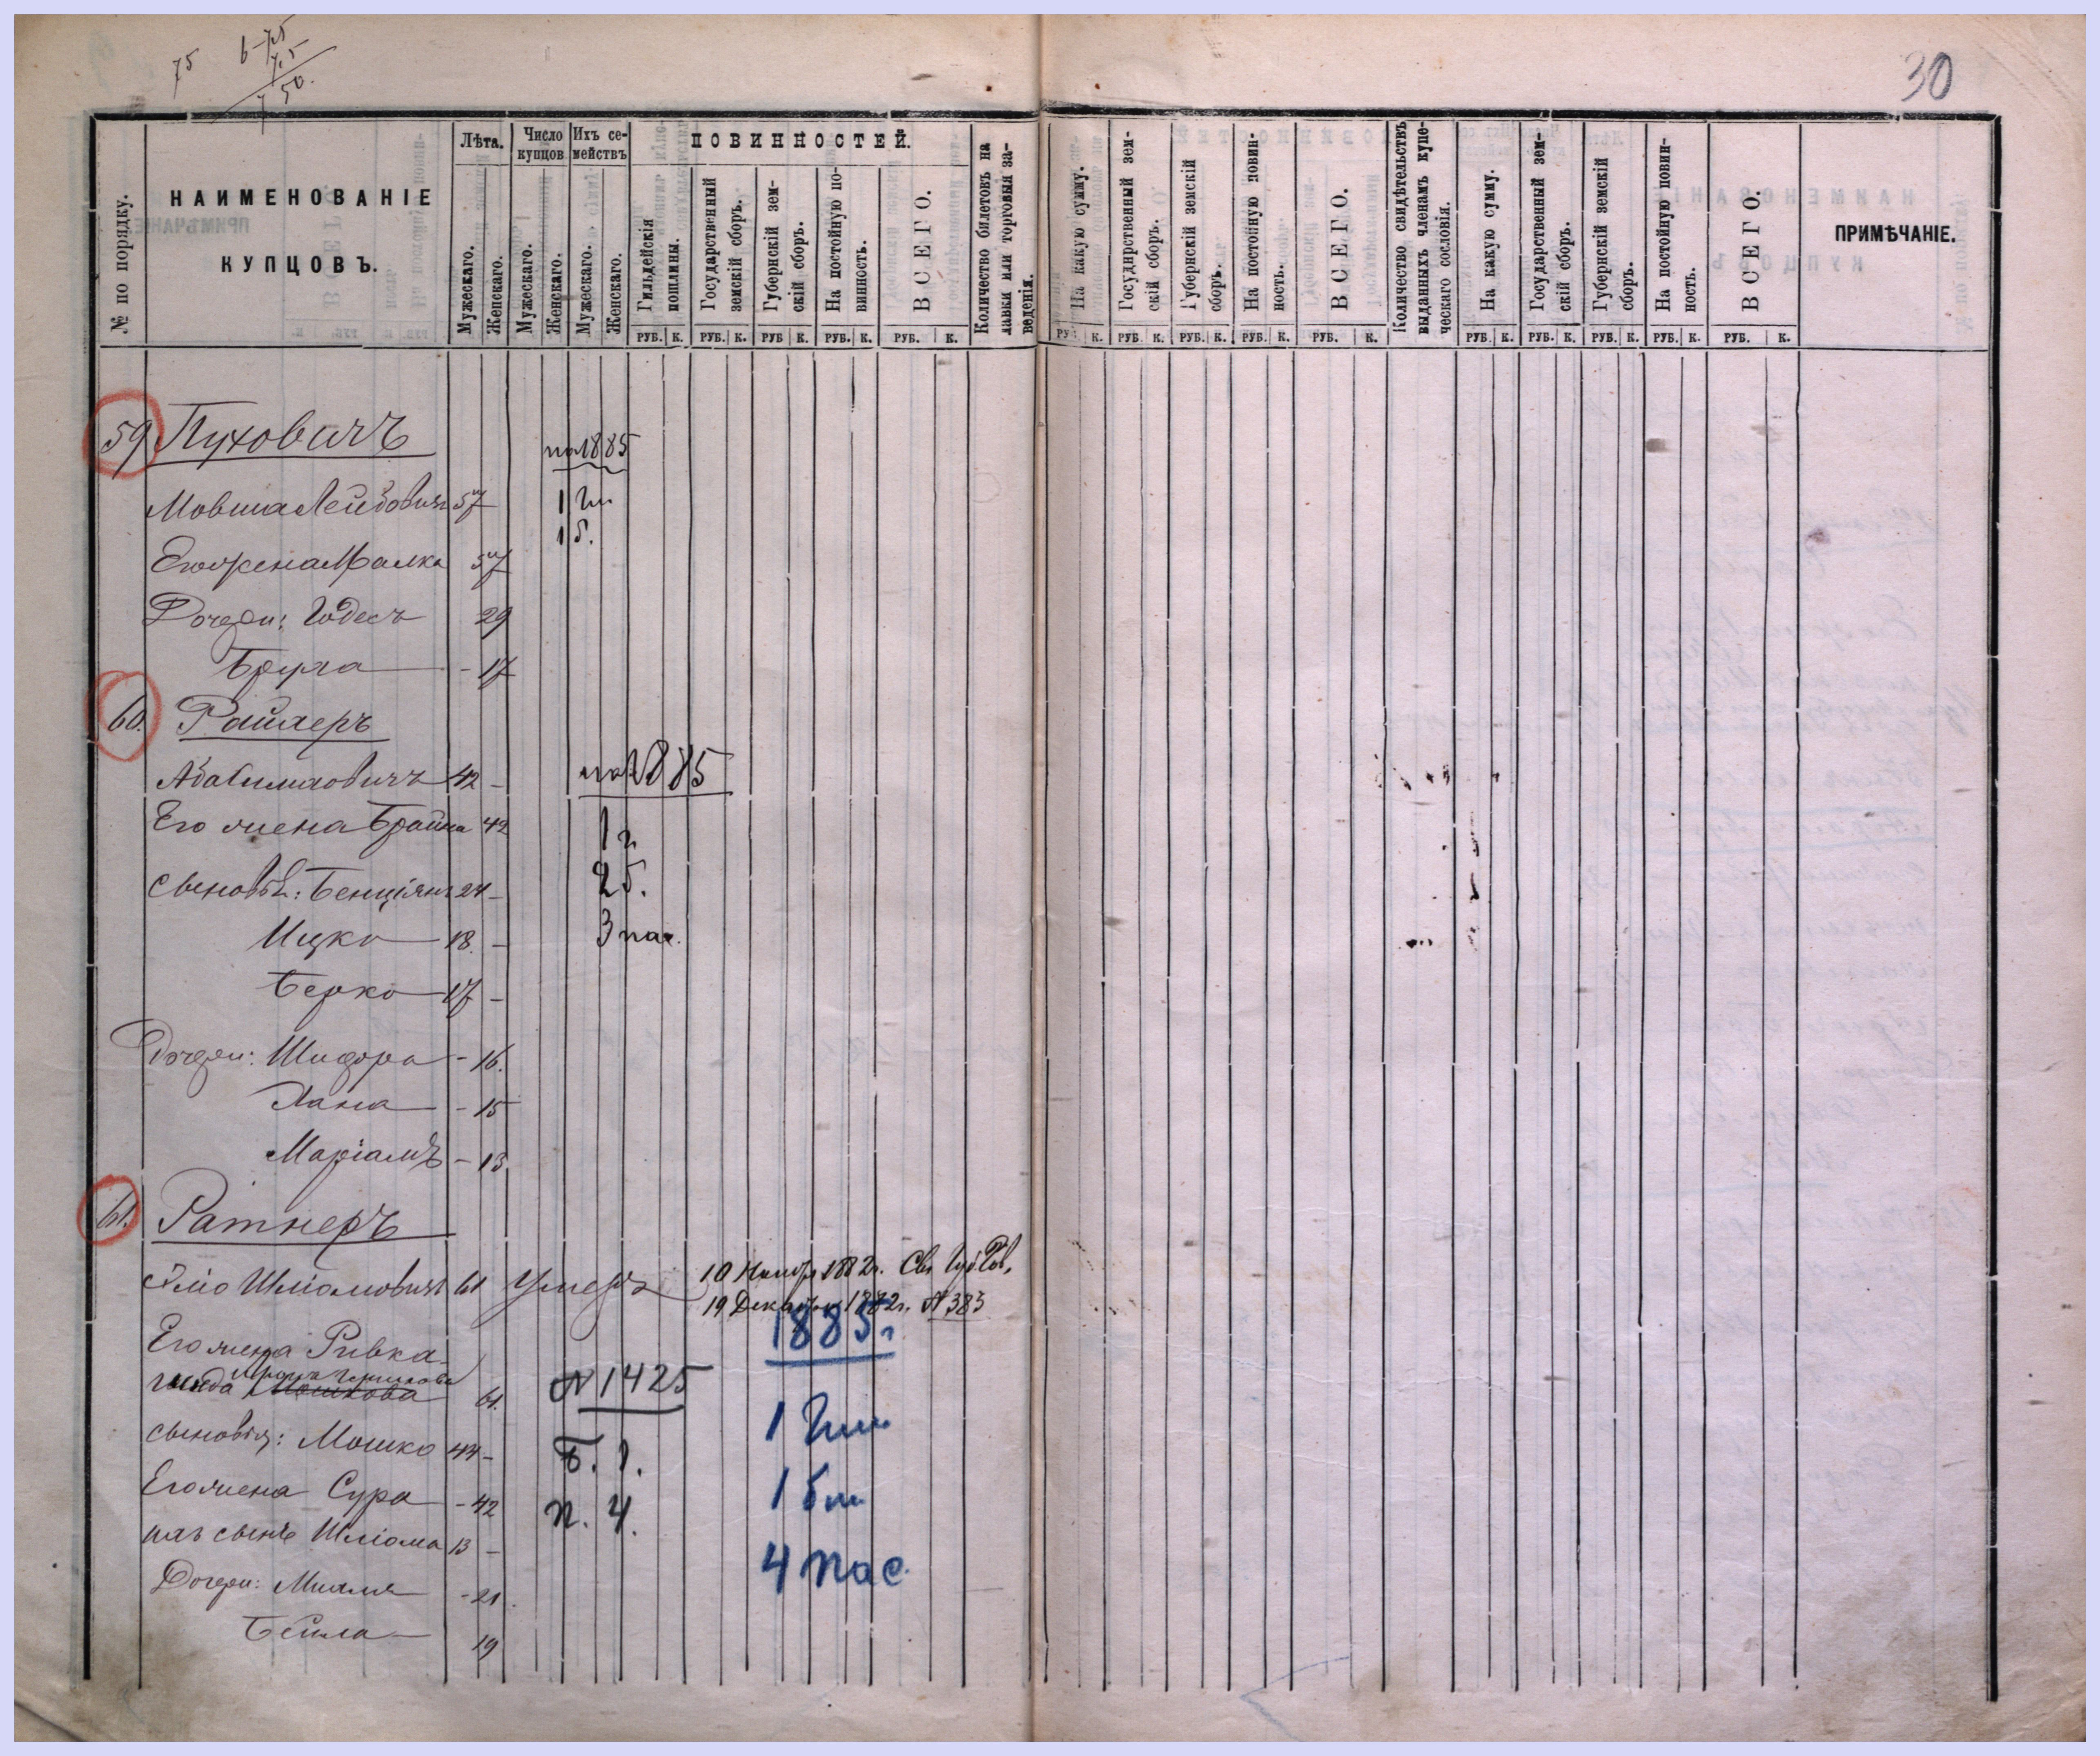 75 6-75
75
7 50.
30
№ по порядку.
НАИМЕНОВАНІЕ
КУПЦОВЪ.
Лѣта.
Мужескаго.
Женскаго.
Число купцовъ
Мужескаго.
Женскаго.
Ихъ семействъ
Мужескаго.
Женскаго.
ПОВИННОСТЕЙ.
Гильдейскія пошлины.
Государственный земскій сборъ.
Губернскій земскій сборъ.
На постойную повинность.
ВСЕГО.
Количество билетовъ на лавки или торговыя заведенія.
На какую сумму.
Государственный земскій сборъ.
Губернскій земскій сборъ.
На постойную повинность.
ВСЕГО.
Количество свидѣтельствъ выданныхъ членамъ купеческаго сословія.
На какую сумму.
Государственный земскій сборъ.
Губернскій земскій сборъ.
На постойную повинность.
ВСЕГО.
ПРИМѢЧАНІЕ.
РУБ. К. РУБ. К. РУБ К. РУБ. К. РУБ. К. РУБ. К. РУБ. К. РУБ. К. РУБ. К. РУБ. К. РУБ. К. РУБ. К. РУБ. К. РУБ. К. РУБ. К.
59 Пуховичъ
на 1885
Мовша Лейбовичъ 57 1 Гил
1 б.
Его жена Малка 57
Дочери: Годесъ 29
Брула - 17
60. Райхеръ
Аба Симховичъ 42 - на 1885
Его жена Брайна 42 1 г
сыновья: Бенціянъ 24 - 2 б.
Ицко 18. - 3 пас.
Берко 17 -
Дочери: Шифра - 16.
Хана - 15
Маріамъ - 13
61. Ратнеръ
Шліомовичъ 61 Умеръ 10 Ноября 1882г. Св. Губ. Пов.
19 Декабря 1882г. № 383
1885г
Его жена Ривка
61. № 1425
сыновья: Мошко 44 - Б. 1. 1 Гил
Его жена Сура - 42 п. 4. 1 бил
ихъ сынъ Шліома 13 -
4 пас.
Дочери: Михля - 21.
Бейла 19